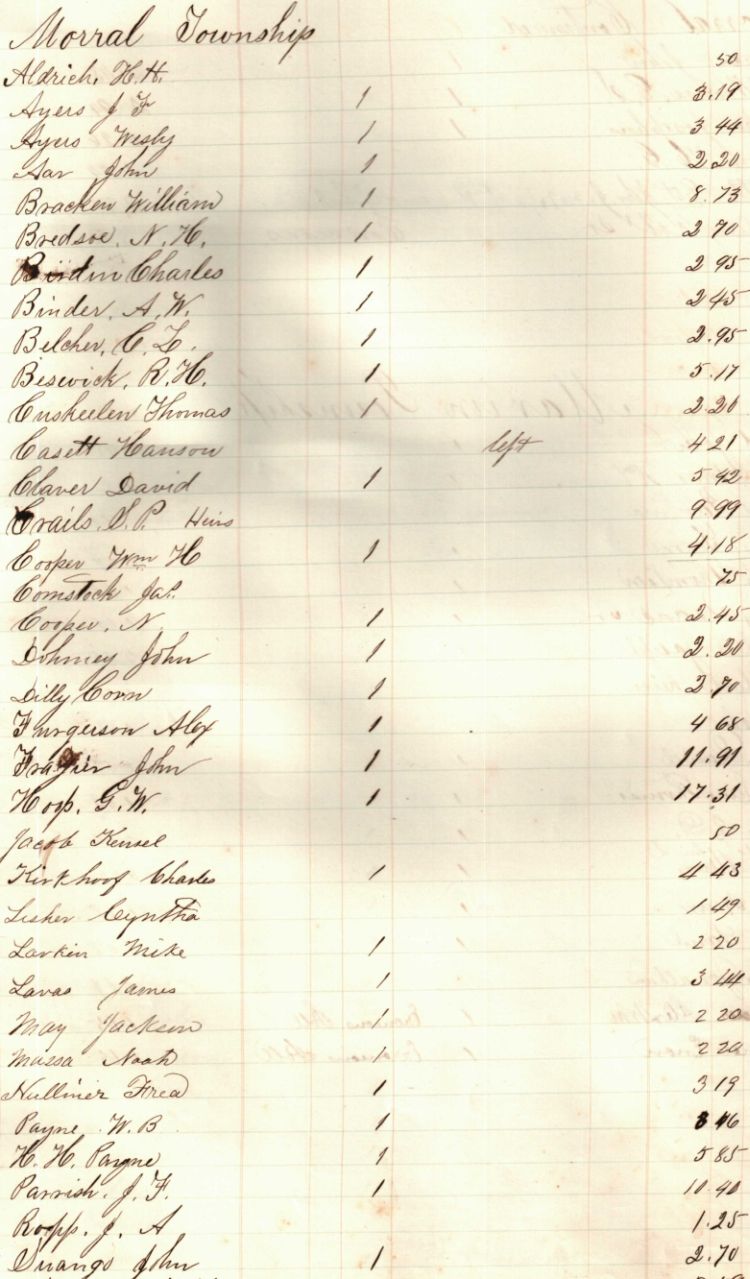 Morral Township
Aldrich, H. H. 50
Ayers J F 1 3.19
Ayers Wesly 1 3 44
Aar John 1 2 20
Bracken William 1 8.73
Bredsoe, N. H. 1 2 70
Charles 1 2 95
Binder, A. W. 1 2 45
Belcher, C. L. 1 2.95
Beswick, R. H. 1 5.17
Cuskeelen Thomas 1 2.20
Casett Hanson left 4 21
Claver David 1 5 42
Crails, S. P. Heirs 9 99
Cooper Wm H 1 4.18
Comstock Jas. 75
Cooper, N 1 2.45
Dohmey John 1 2.20
Dilly Corn 1 2.70
Furgerson Alex 1 4 68
Frazier John 1 11.91
Hoop, G. W. 1 17.31
Jacob Kensel 50
Kirkhoof Charles 1 4 43
Lisher Cyntha 1 49
Larkin Mike 1 2 20
Lavas James 1 3 44
May Jackson 1 2 20
Massa Noah 1 2 20
Nulliner Fred 1 3 19
Payne W. B 1 46
H. H. Payne 1 5 85
Parrish, J. F. 1 10.40
Ropp, J. A 1.25
John 1 2.70